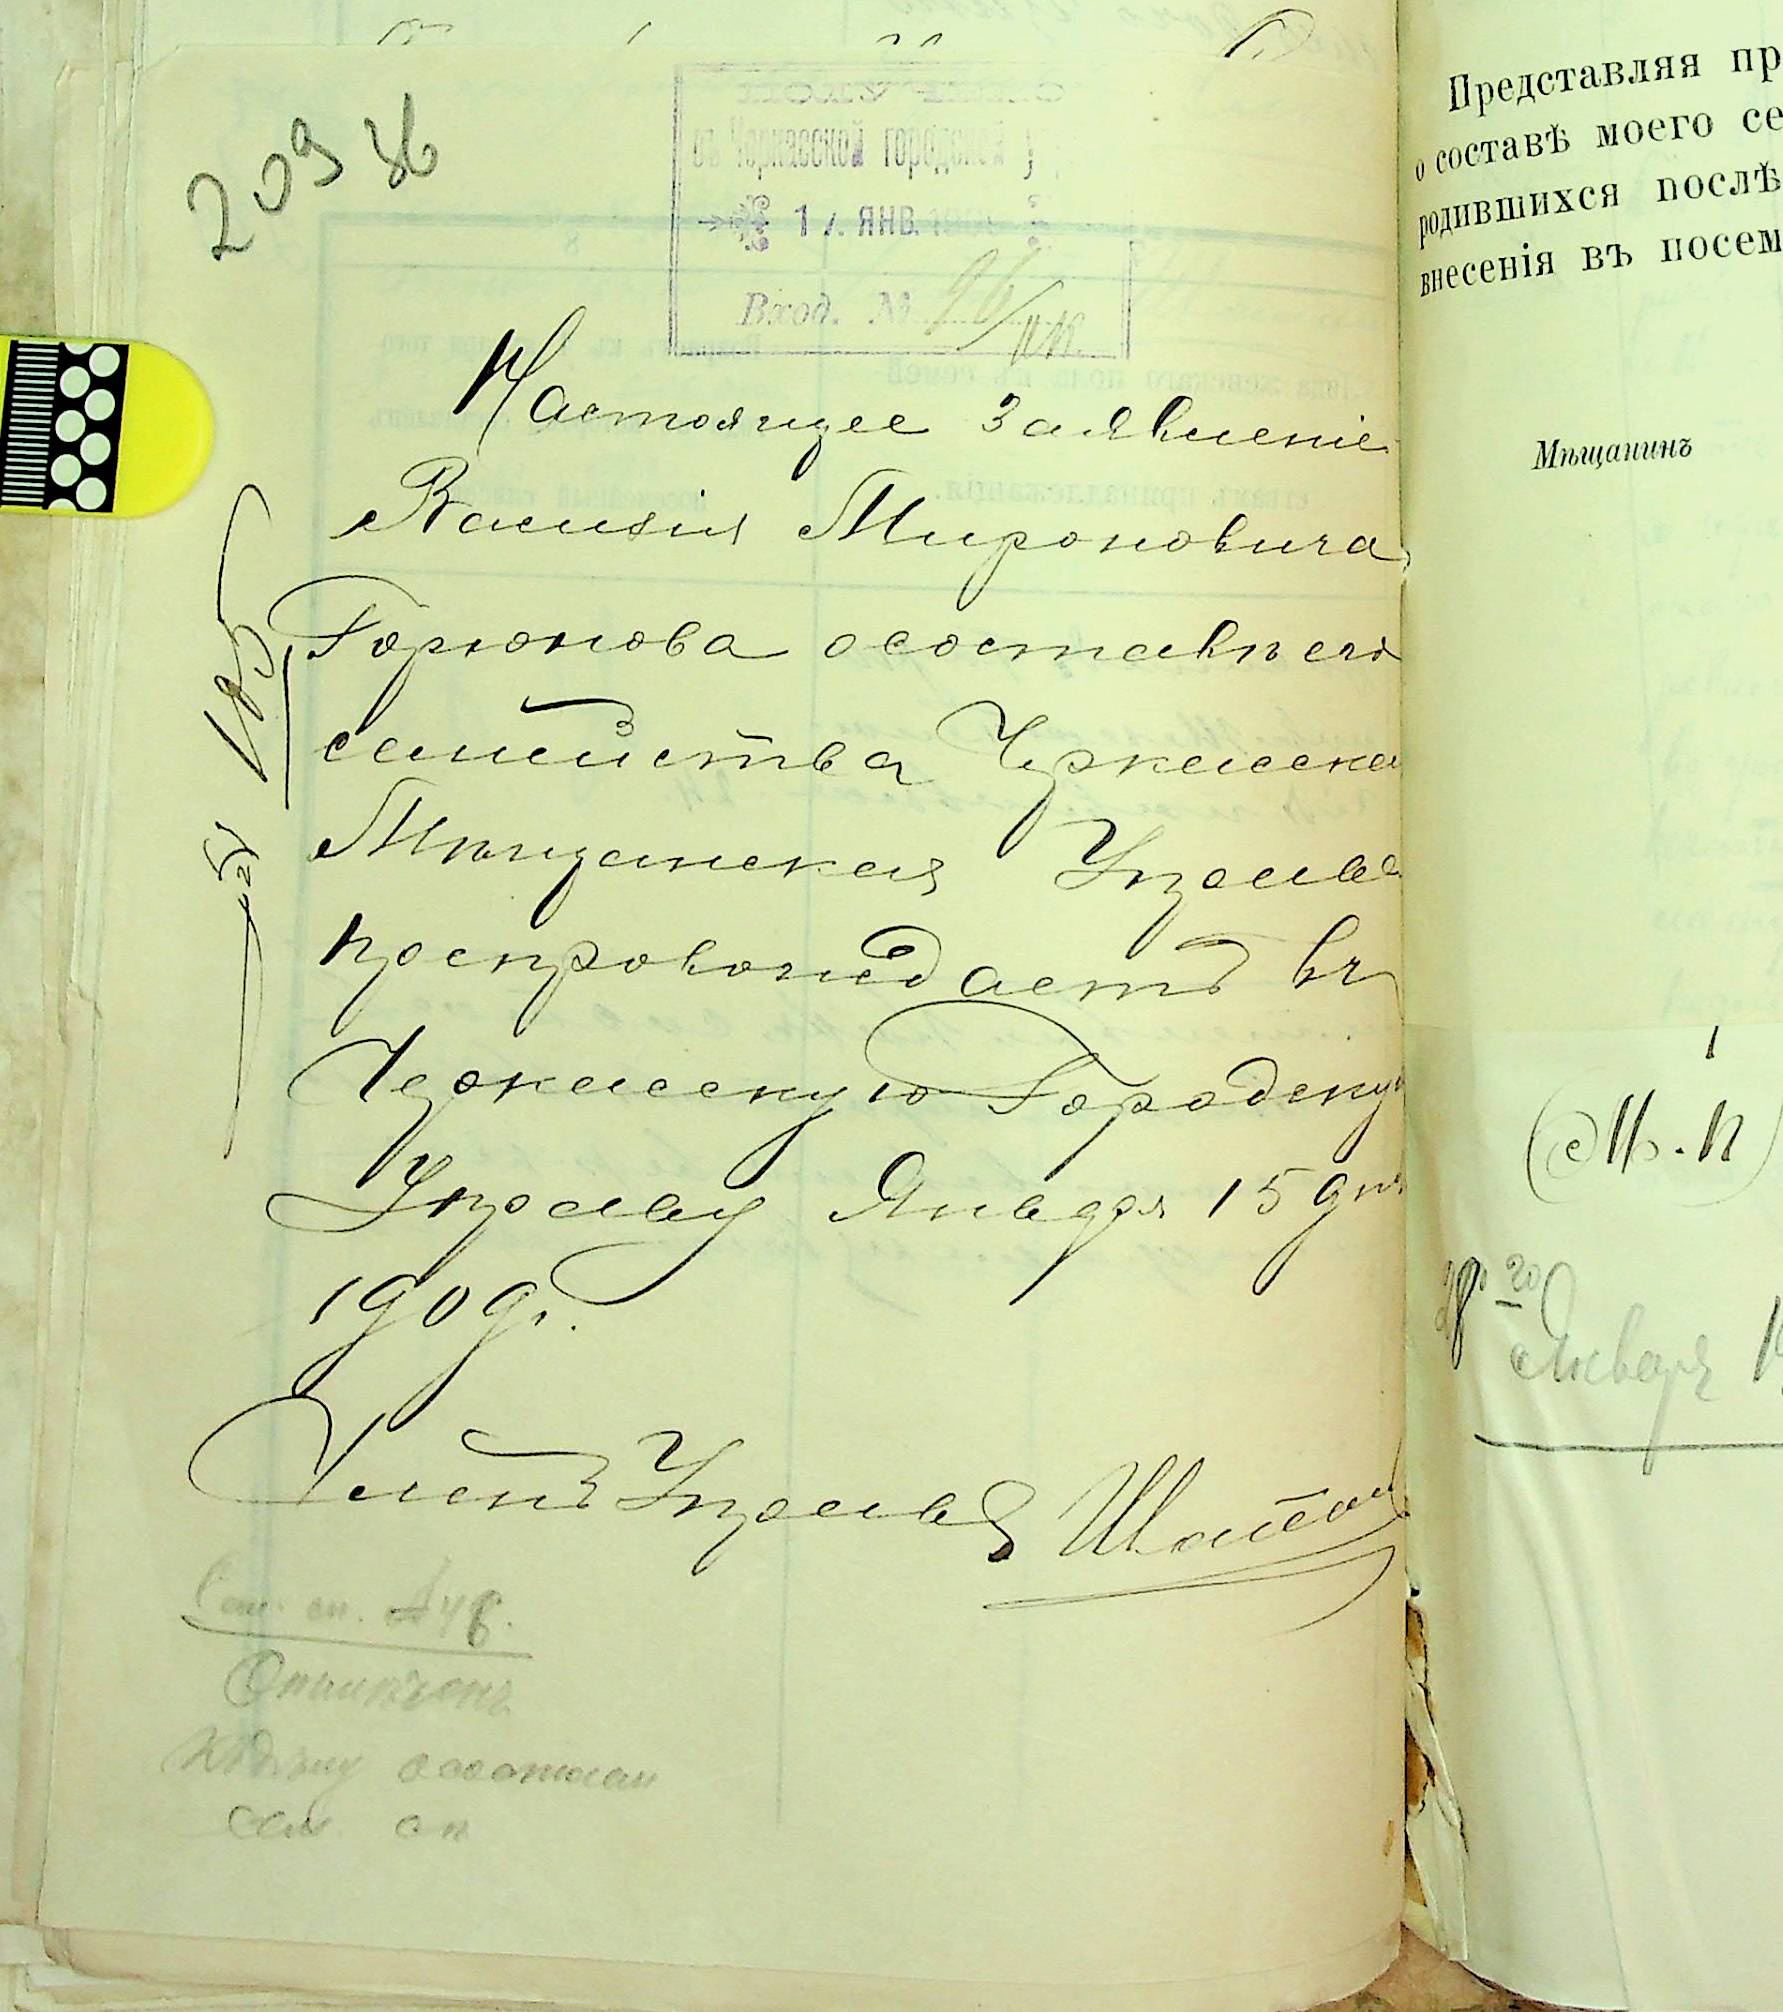 209 зв
въ Черкасской городской у
17. ЯНВ. 190
Вход. № 96/
Настоящее заявленіе
Василія Мироновича
Горюнова о составѣ его
семейства Черкасска
Мѣщанская Управа
препровождаетъ въ
Черкасскую Городскую
Управу Января 15 дня
1909 г.
Членъ Управы
№ 51
185
Сем. сп.
Отмѣченъ
сем. сп
Представляя пр
о составѣ моего се
родившихся послѣ
внесенія въ посем
Мѣщанинъ
1
(М. П)
20
Января